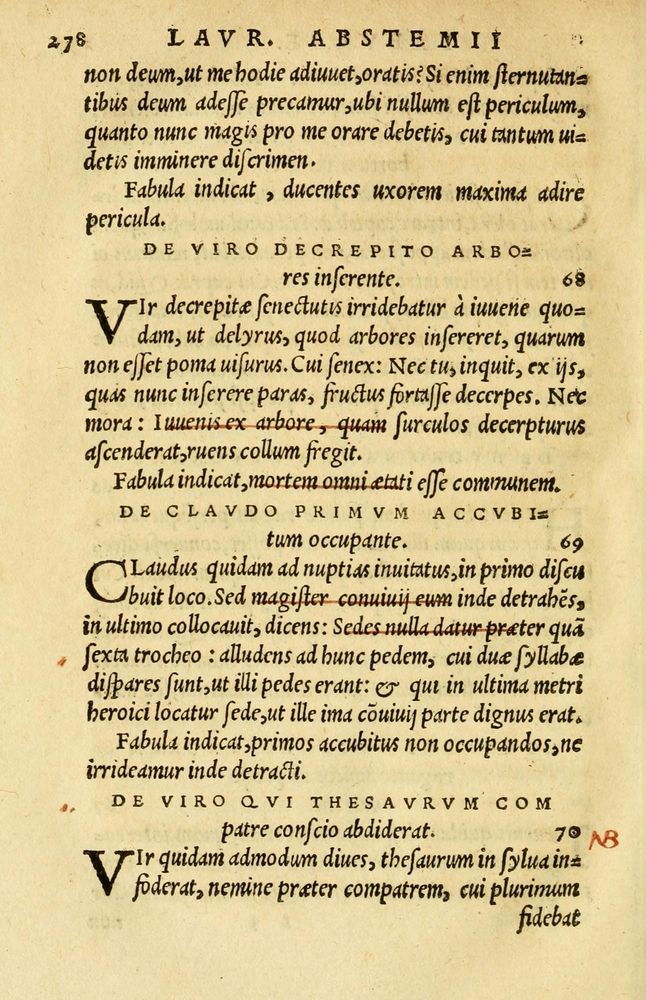 278 LAVR. ABSTEMII
non deum,ut me hodie adiuuet,oratis? Si enim ſternutan=
tibus deum adeſſe precamur,ubi nullum eſt periculum,
quanto nunc magis pro me orare debetis, cui tantum ui=
detis imminere diſcrimen.
Fabula indicat , ducentes uxorem maxima adire
pericula.
DE VIRO DECREPITO ARBO=
res inſerente. 68
VIr decrepitæ ſenectutis irridebatur à iuuene quo=
dam, ut delyrus, quod arbores inſereret, quarum
non eſſet poma uiſurus. Cui ſenex: Nec tu, inquit, ex ijs,
quas nunc inſerere paras, fructus fortaſſe decerpes. Nec
mora : Iuuenis ex arbore, quam ſurculos decerpturus
aſcenderat,ruens collum fregit.
Fabula indicat,mortem omni ætati eſſe communem.
DE CLAVDO PRIMVM ACCVBI=
tum occupante. 69
CLaudus quidam ad nuptias inuitatus,in primo diſcu
buit loco. Sed magiſter conuiuij eum inde detrahẽs,
in ultimo collocauit, dicens: Sedes nulla datur præter quã
ſexta trocheo : alludens ad hunc pedem, cui duæ ſyllabæ
diſpares ſunt,ut illi pedes erant: & qui in ultima metri
heroici locatur ſede,ut ille ima cõuiuij parte dignus erat.
Fabula indicat,primos accubitus non occupandos,ne
irrideamur inde detracti.
DE VIRO QVI THESAVRVM COM
patre conſcio abdiderat. 70 NB
VIr quidam admodum diues, theſaurum in ſylua in=
foderat, nemine præter compatrem, cui plurimum
fidebat